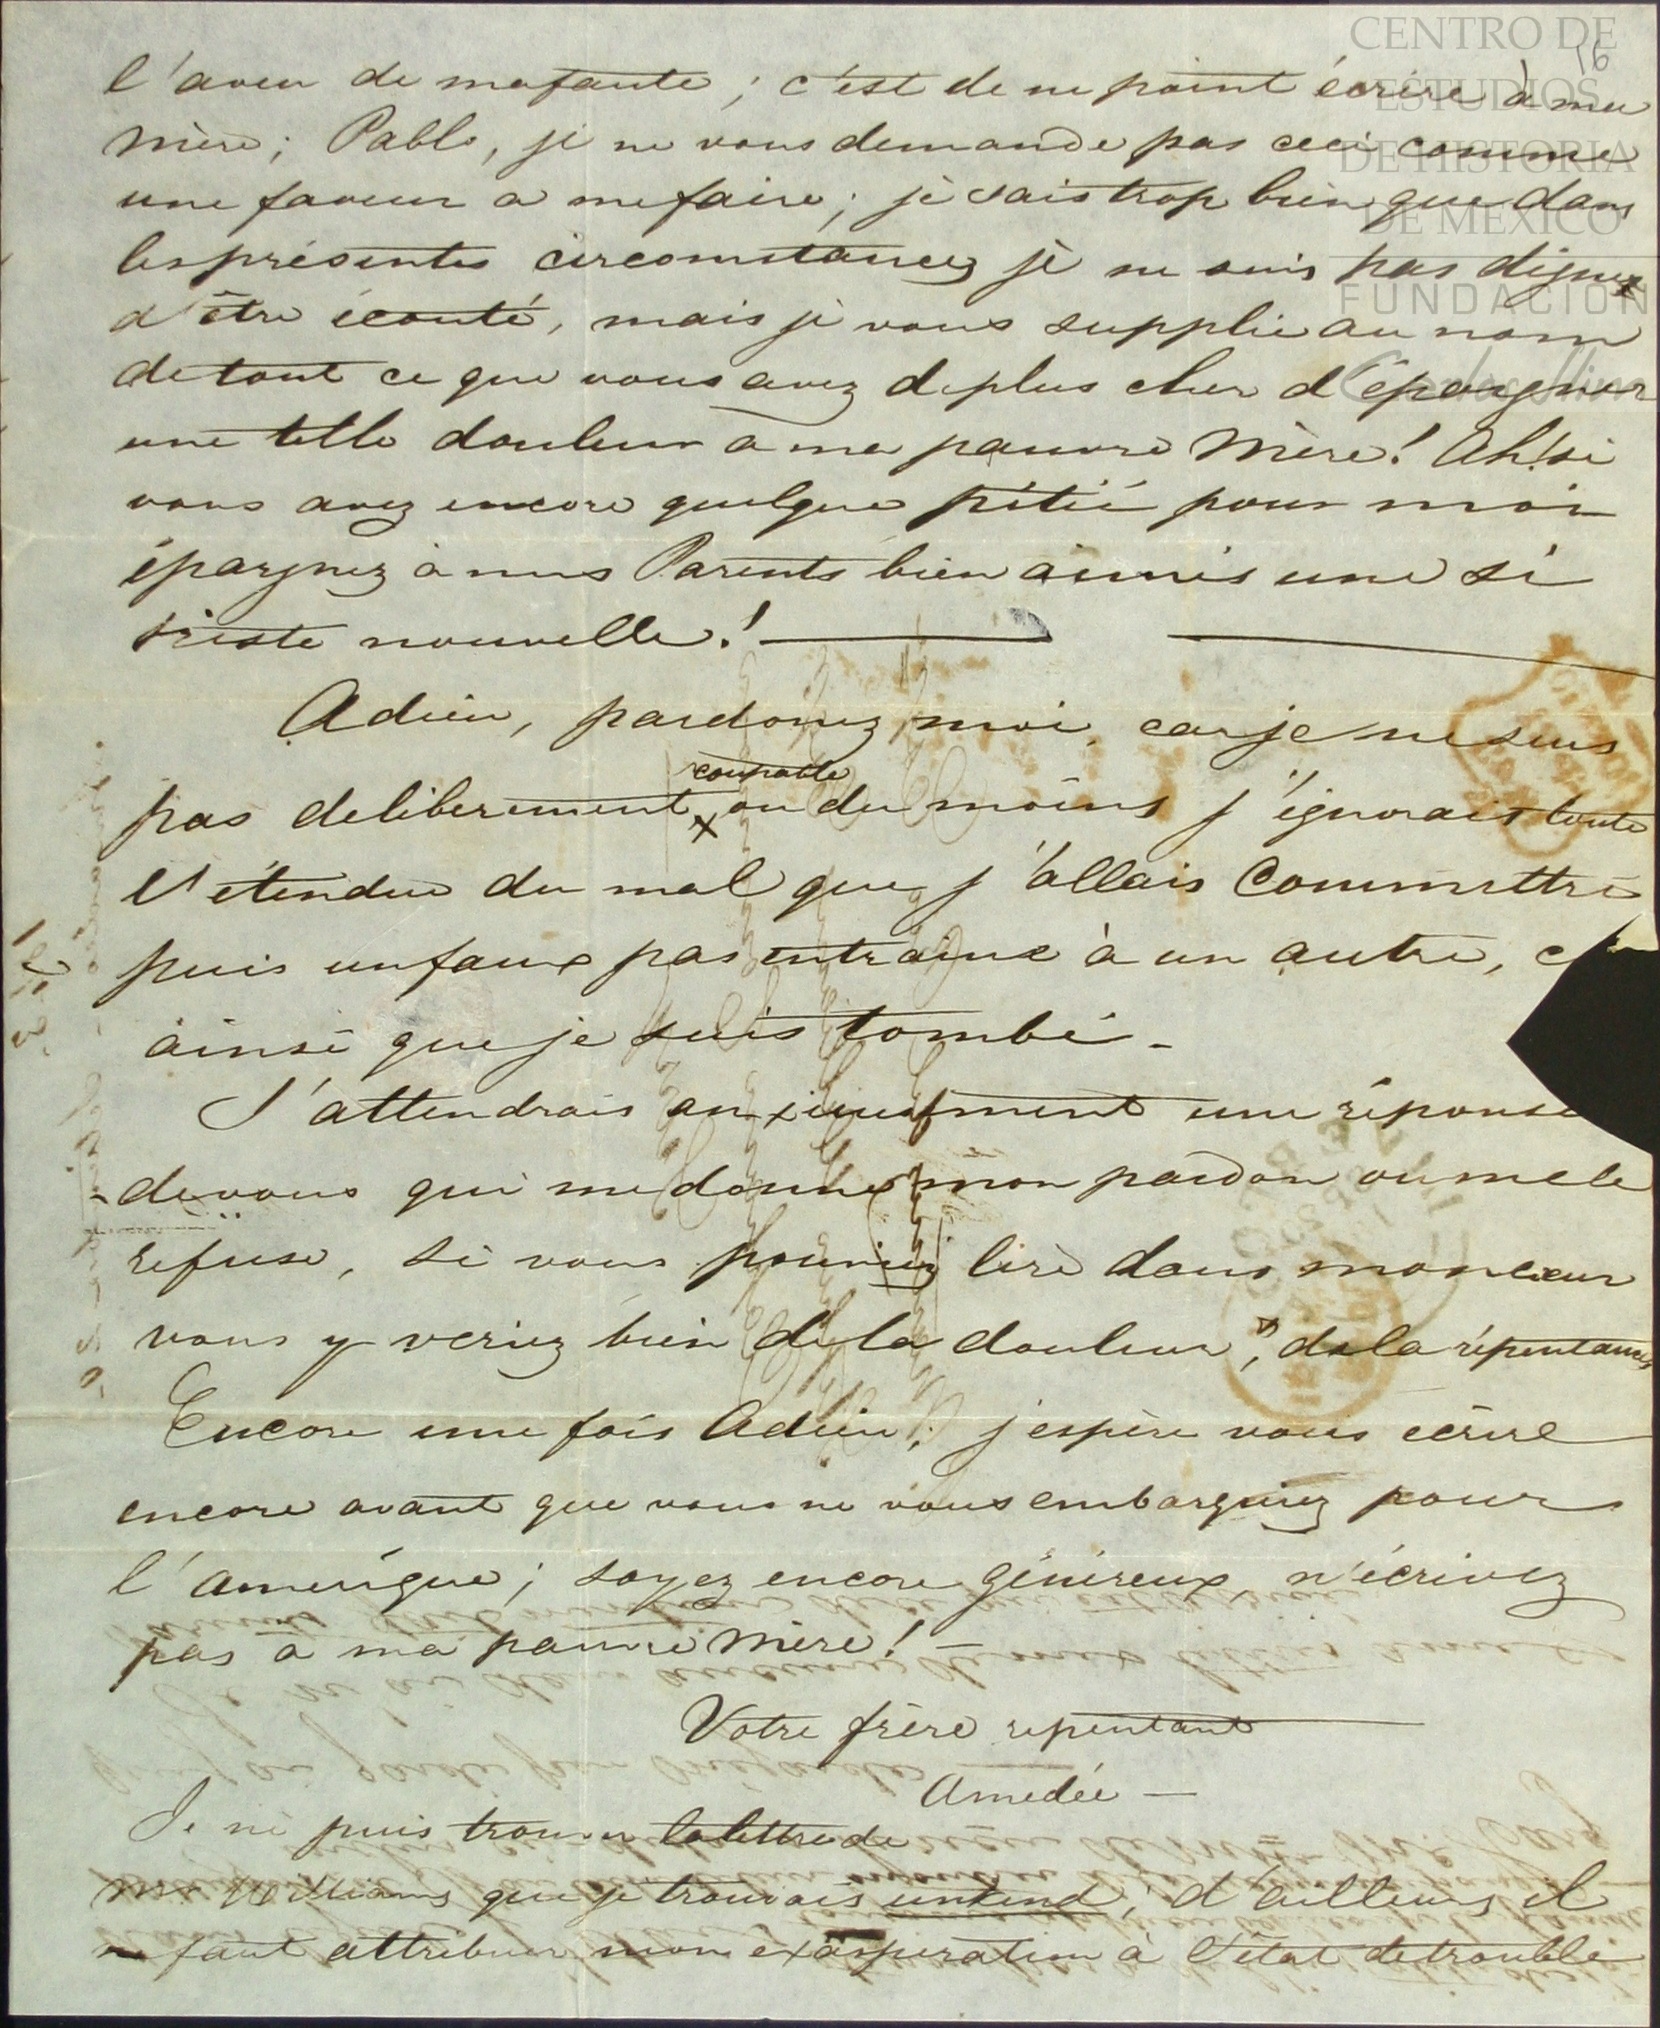 CENTRO DE
ESTUDIOS
DE HISTORIA
DE MEXICO
FUNDACIÓN
16
l'aveu de ma faute ; c'est de ne point écrire à ma
Mère ; Pablo, je ne vous demande pas ceci comme
une faveur a me faire ; je sais trop bien que dans
les présentes circomstances je ne suis pas digne
d'être écouté, mais je vous supplie au nom
de tout ce que vous avez de plus cher d'épargner
une telle douleur a ma pauvre Mère ! Ah ! si
vous avez encore quelque pitié pour moi
épargnez à nos Parents bien aimés une si
triste nouvelle !
Adieu, pardonez moi, car je ne suis
coupable
pas deliberement x ou du moins j'ignorais toute
l'étendue du mal que j'allais Commettre
puis un faux pas entraine à un autre, c
ainsi que je suis tombé -
J'attendrais anxieusement une réponse
de vous qui me donne mon pardon ou me le
refuse, si vous pouviez lire dans mon cœur
vous y veriez bien de la douleur, de la répentance
Encore une fois Adieu ; j'espère vous écrire
encore avant que vous ne vous embarquiez pour
l'amérique ; soyez encore généreux n'écrivez
pas a ma pauvre Mère ! -
Votre frère repentant
Amedée -
Je ne puis trouver la lettre de
Williams que je trouvais unkind ; d'ailleurs il
faut attribuer mon exasperation à l'état de trouble